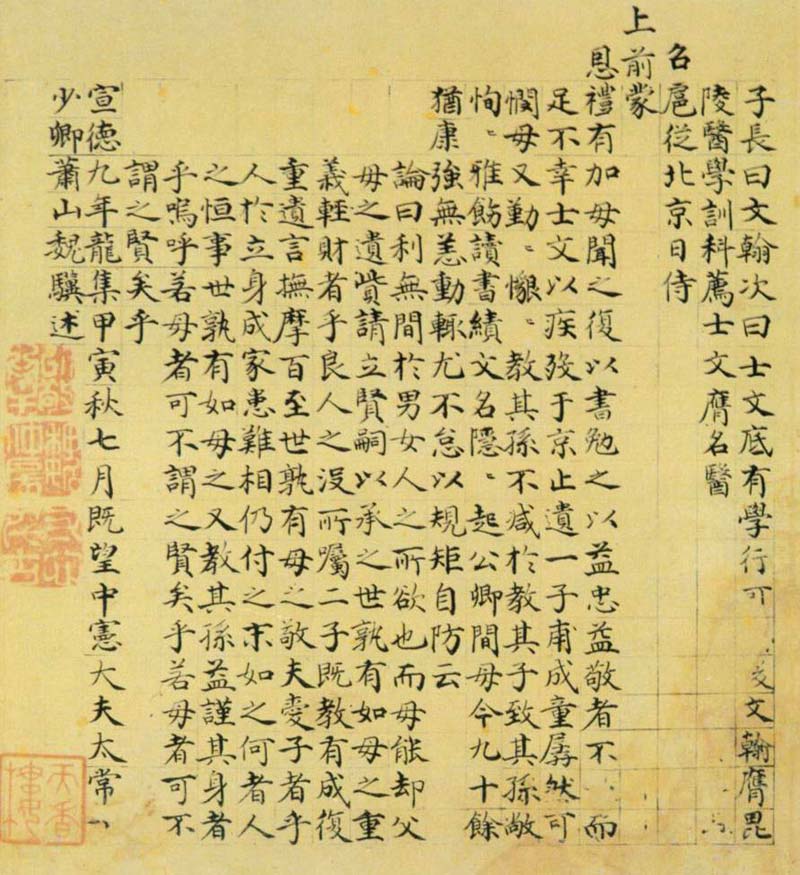 子長曰文翰次曰士文底有學行可 文翰膺毘
陵醫學訓科薦士文膺名醫
名扈從北京日侍
上前蒙
恩禮有加母聞之復以書勉之以益忠益敬者不 而
足不幸士文以疾歿于京止遺一子甫成童孱然可
憫母又勤〻懇〻教其孫不減於教其子致其孫敞
恂〻雅飭讀書績文名隱〻起公卿間母今九十餘
猶康強無恙動輒尤不怠以規矩自防云
論曰利無間於男女人之所欲也而母能却父
母之遺貲請立賢嗣以承之世孰有如母之重
義輕財者乎良人之沒所囑二子既教有成復
重遺言撫摩百至世孰有母之敬夫愛子者乎
人於立身成家患難相仍付之末如之何者人
之恒事世孰有如母之又教其孫益謹其身者
乎嗚呼若母者可不謂之賢矣乎若母者可不
謂之賢矣乎
宣德九年龍集甲寅秋七月既望中憲大夫太常
少卿蕭山魏驥述